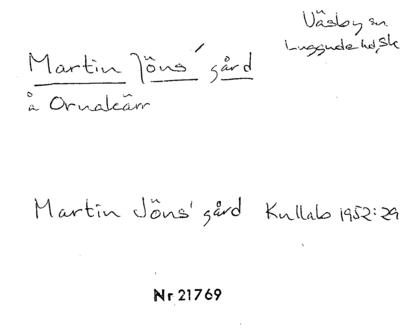 Väsby sn.
Luggude hd, Sk
Martin Jöns' gård
å Ornakärr
Martin Jöns' gård Kullab 1952:29
Nr 21769